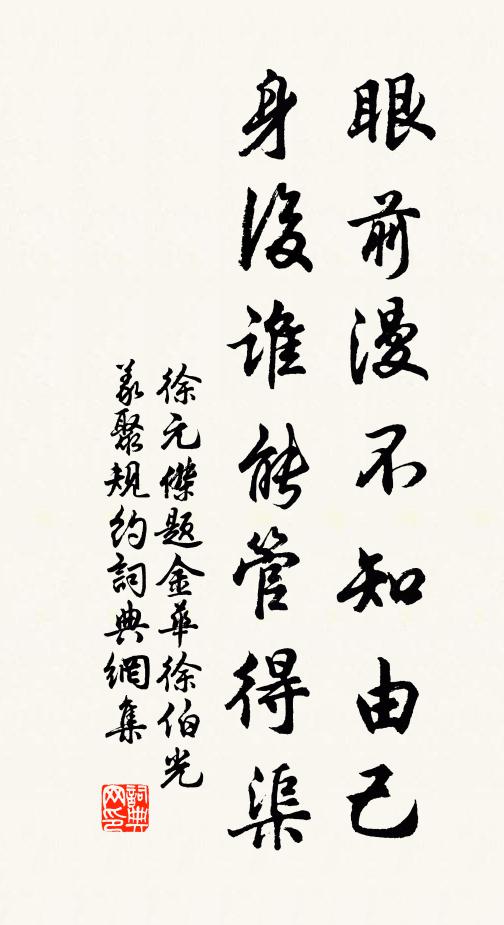 眼前漫不知由己
身後誰能管得渠
徐元傑題金華徐伯光
義聚規約詞典網集
詞典
网印